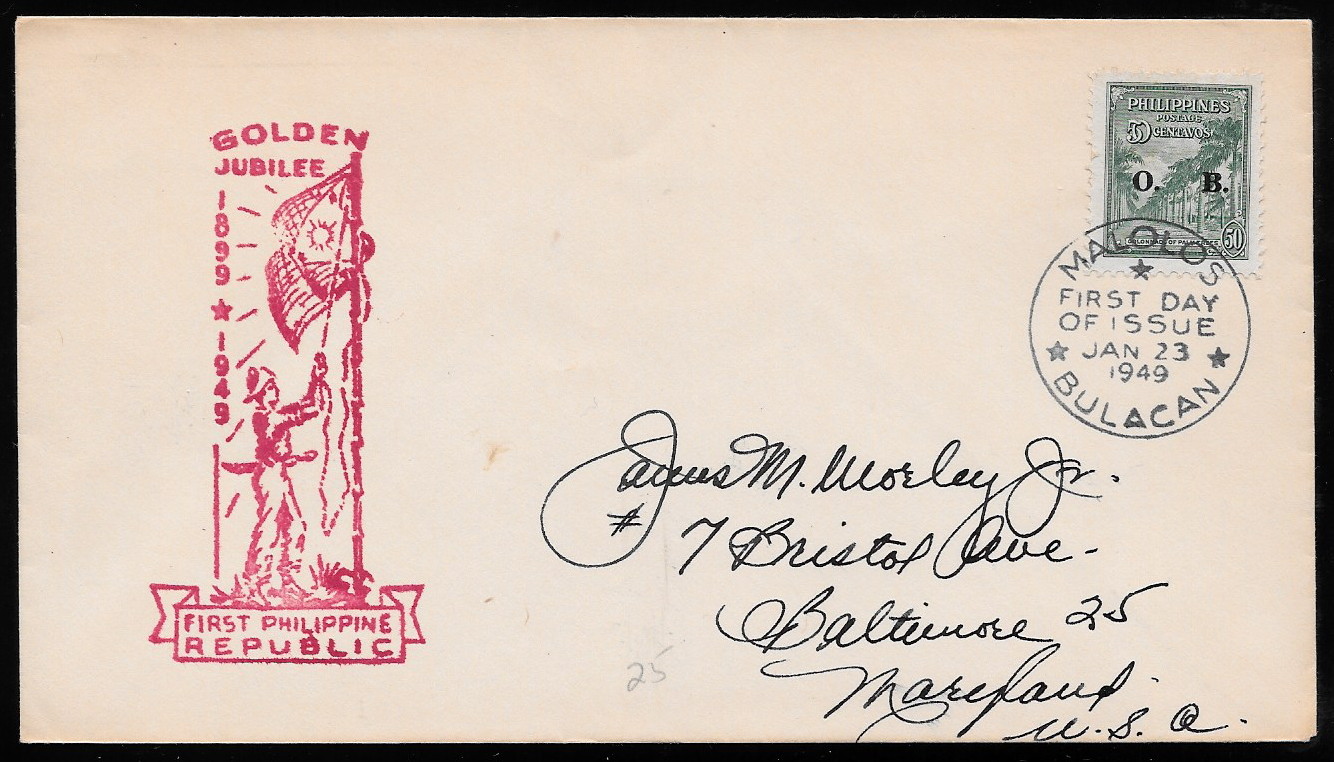 GOLDEN
JUBILEE
1899 ★ 1949
FIRST PHILIPPINE
REPUBLIC
PHILIPPINES
POSTAGE
50 CENTAVOS
O. B.
COLONNADE OF PALM TREES
50
MALOLOS
FIRST DAY
OF ISSUE
JAN 23
1949
BULACAN
James M. Morley Jr.
# 7 Bristol Ave.
Baltimore 25
Maryland
U. S. A.
25